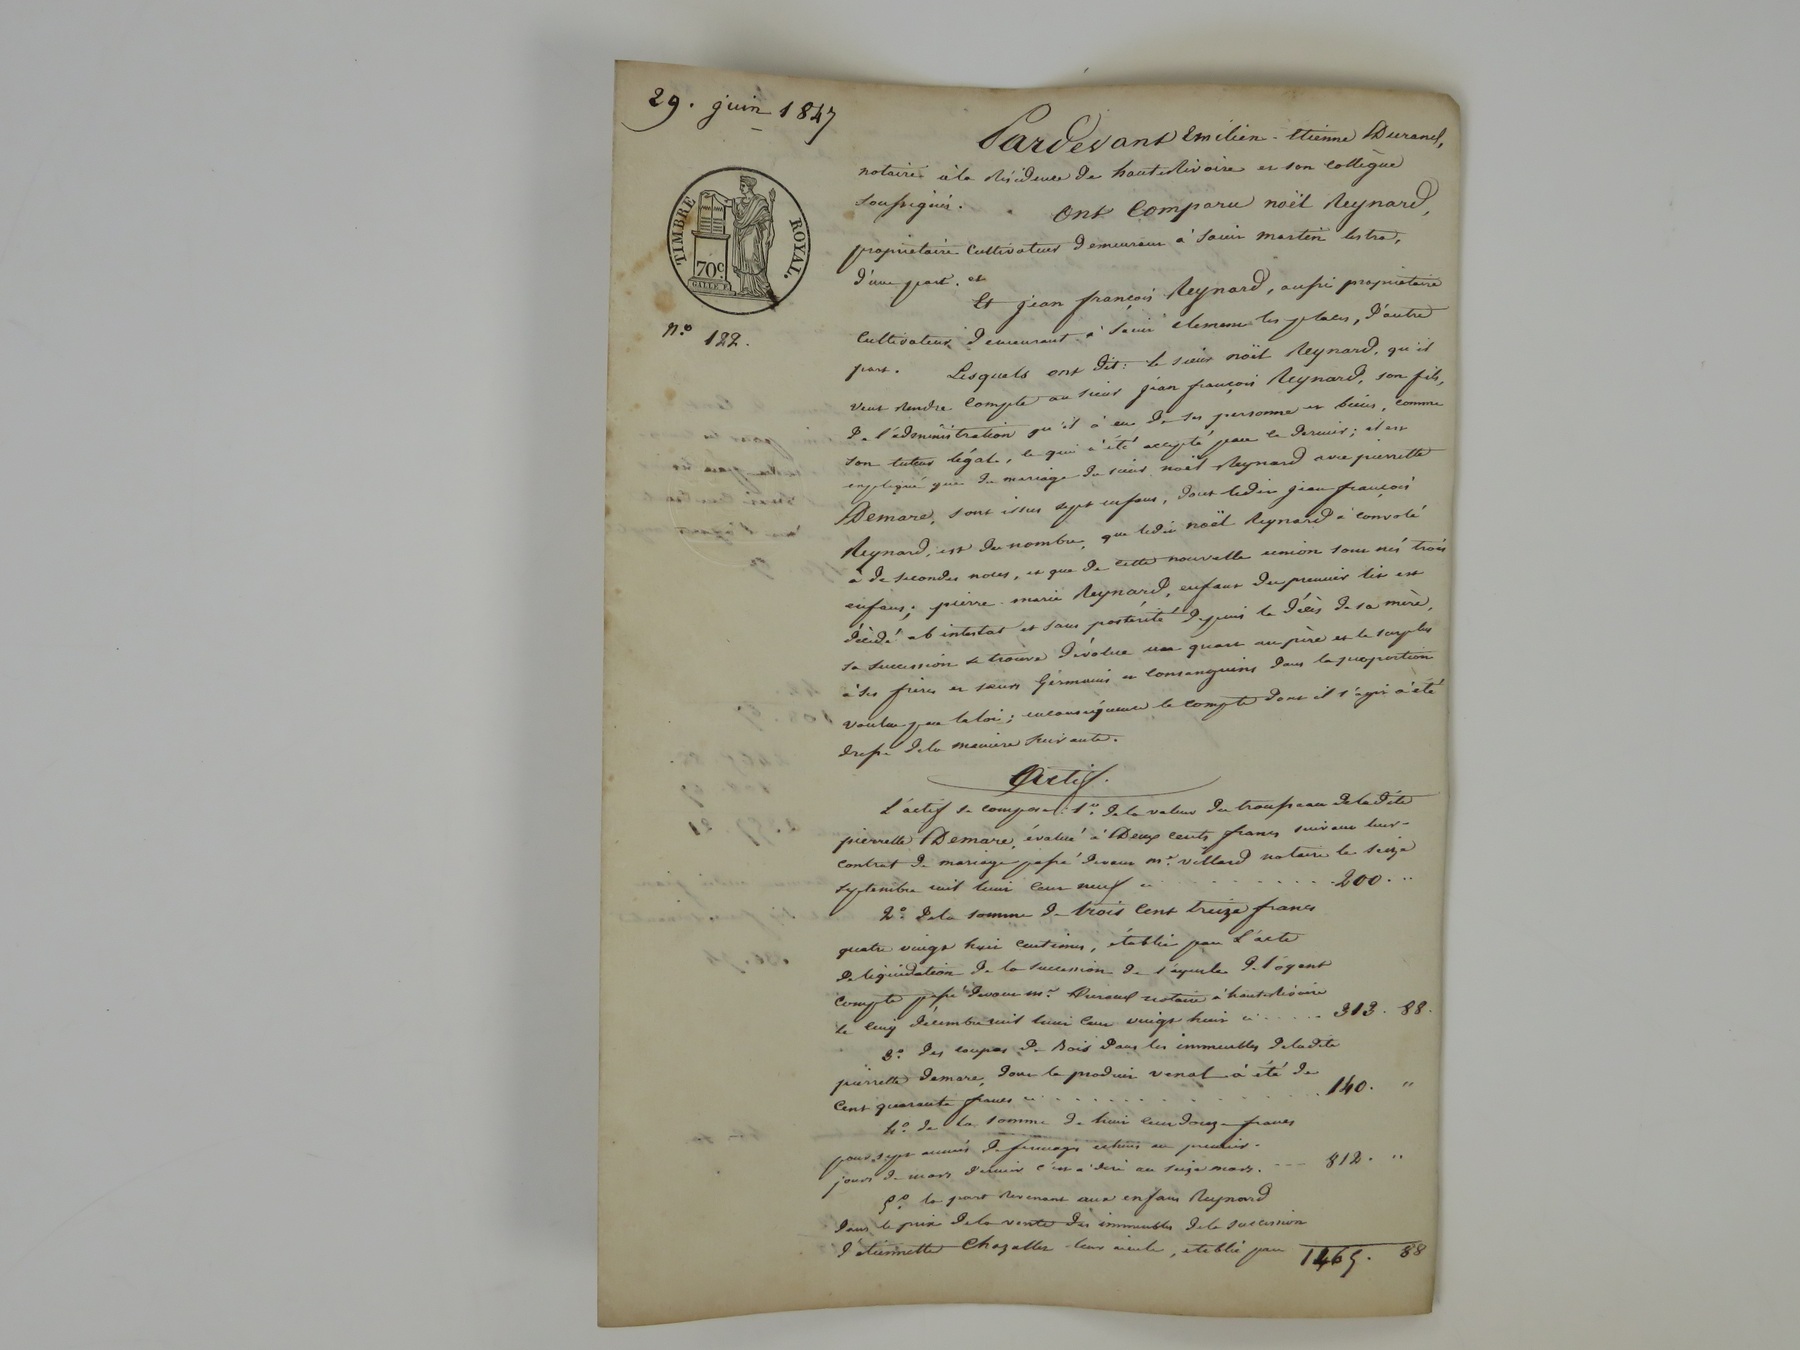 29. juin 1847
TIMBRE ROYAL.
70c
GALLE F.
n.o 122.
Pardevant Emilien-Etienne Durand,
notaire à la Résidence de hauteRivoire et son collègue
soussignés. Ont Comparu noël Reynard,
propriétaire cultivateur demeurant à Saint martin lestra,
d'une part. et
Et jean françois Reynard, aussi propriétaire
cultivateur demeurant à Saint Clement les places, d'autre
part. Lesquels ont dit: le sieur noël Reynard, qu'il
veut Rendre Compte au sieur jean françois Reynard, son fils,
de l'administration qu'il a eue de ses personne et biens, comme
son tuteur légal, ce qui a été accepté par ce dernier; et est
expliqué que du mariage du sieur noël Reynard avec pierrette
Demare, sont issus sept enfans, dont ledit jean françois
Reynard, est du nombre, que ledit noël Reynard a convolé
à de secondes noces, et que de cette nouvelle union sont nés trois
enfans; pierre-marie Reynard, enfant du premier lit est
décédé ab intestat et sans postérité depuis le décès de sa mère,
sa succession se trouve dévolue un quart au père et le surplus
à ses frères et sœurs Germains et consanguins dans la proportion
voulue par la loi; enconséquence le compte dont il s'agit a été
dressé de la manière suivante.
Actif.
L'actif se compose: 1o. de la valeur du trousseau deladite
pierrette Demare, évalué à Deux cents francs suivant leur
contrat de mariage passé devant me. villard notaire le seize
septembre mil huit cent neuf ci 200. "
2o. de la somme de trois Cent treize francs
quatre vingt huit centimes, établie par L'acte
de liquidation de la succession de l'ayeule de l'oyant
compte passé devant me. Durand notaire à hauteRivoire
le cinq décembre mil huit cent vingt huit ci 313. 88.
3o. des coupes de Bois dans les immeubles deladite
pierrette demare, dont le produit venal a été de
Cent quarante francs ci 140. "
4o. de la somme de huit cent douze francs
pour sept années de fermages echus au premier
jours de mars dernier c'est à dire au seize mars. 812. "
5o. la part Revenant aux enfans Reynard
dans le prix de la vente des immeubles de la succession
d'étiennette Chazallet leur aieule, établie par 1465. 88